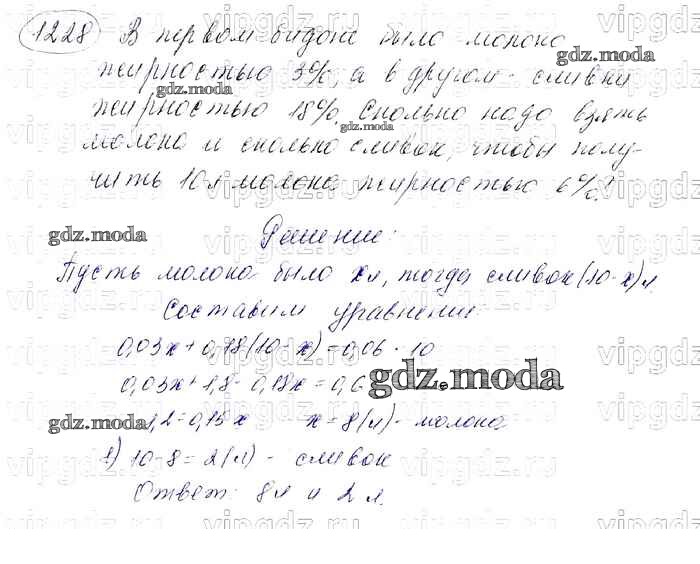 1228 В первом бидоне было молоко
жирностью 3%, а в другом - сливки
жирностью 18%. Сколько надо взять
молока и сколько сливок, чтобы полу-
чить 10 л молока жирностью 6%?
Решение:
Пусть молока было x л, тогда сливок (10-x) л
Составим уравнение:
0,03x + 0,18(10-x) = 0,06 · 10
0,03x + 1,8 - 0,18x = 0,6
1,2 = 0,15x x = 8(л) - молоко
1) 10-8 = 2(л) - сливок
Ответ: 8л и 2л.
gdz.moda
gdz.moda
gdz.moda
gdz.moda
gdz.moda
gdz.moda
gdz.moda
vipgdz.ru